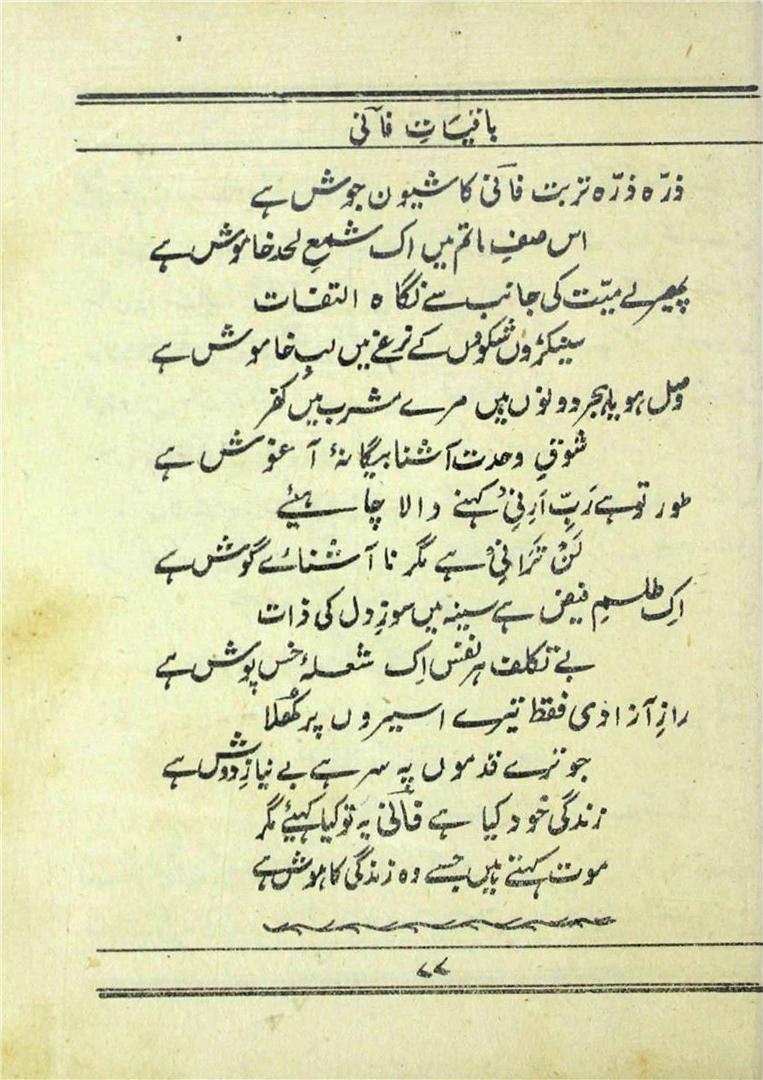 باقیاتِ فانی
ذرّہ ذرّہ تربت فانی کا شیون جوش ہے
اس صفِ ماتم میں اک شمعِ لحد خاموش ہے
پھیر لے میّت کی جانب سے نگاہ التفات
سینکڑوں شکووں کے نرغے میں لبِ خاموش ہے
وصل ہو یا ہجر دونوں ہیں مرے مشرب میں کفر
شوقِ وحدت آشنا بیگانۂ آغوش ہے
طور تو ہے رَبِّ اَرِنِیْ کہنے والا چاہیئے
لَنْ تَرَانِیْ ہے مگر نا آشنائے گوش ہے
اِک طلسمِ فیض ہے سینہ میں سوزِ دل کی ذات
بے تکلف ہر نفس اِک شعلۂ خس پوش ہے
رازِ آزادی فقط تیرے اسیروں پر کُھلا
جو ترے قدموں پہ سر ہے بے نیازِ دوش ہے
زندگی خود کیا ہے فانیؔ یہ تو کیا کہیئے مگر
موت کہتے ہیں جسے وہ زندگی کا ہوش ہے
۷۷